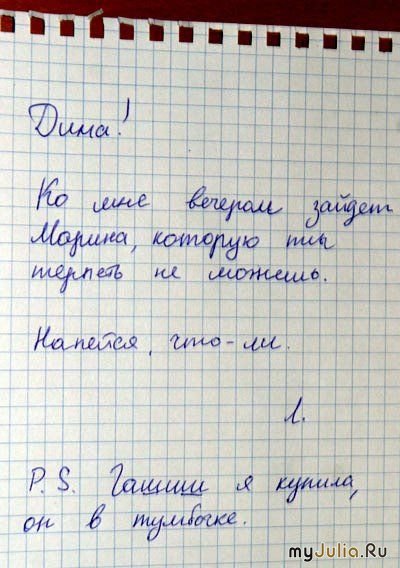 Дима!
Ко мне вечером зайдет
Марина, которую ты
терпеть не можешь.
Напейся, что-ли.
Л.
P.S. Гашиш я купила,
он в тумбочке.
myJulia.Ru